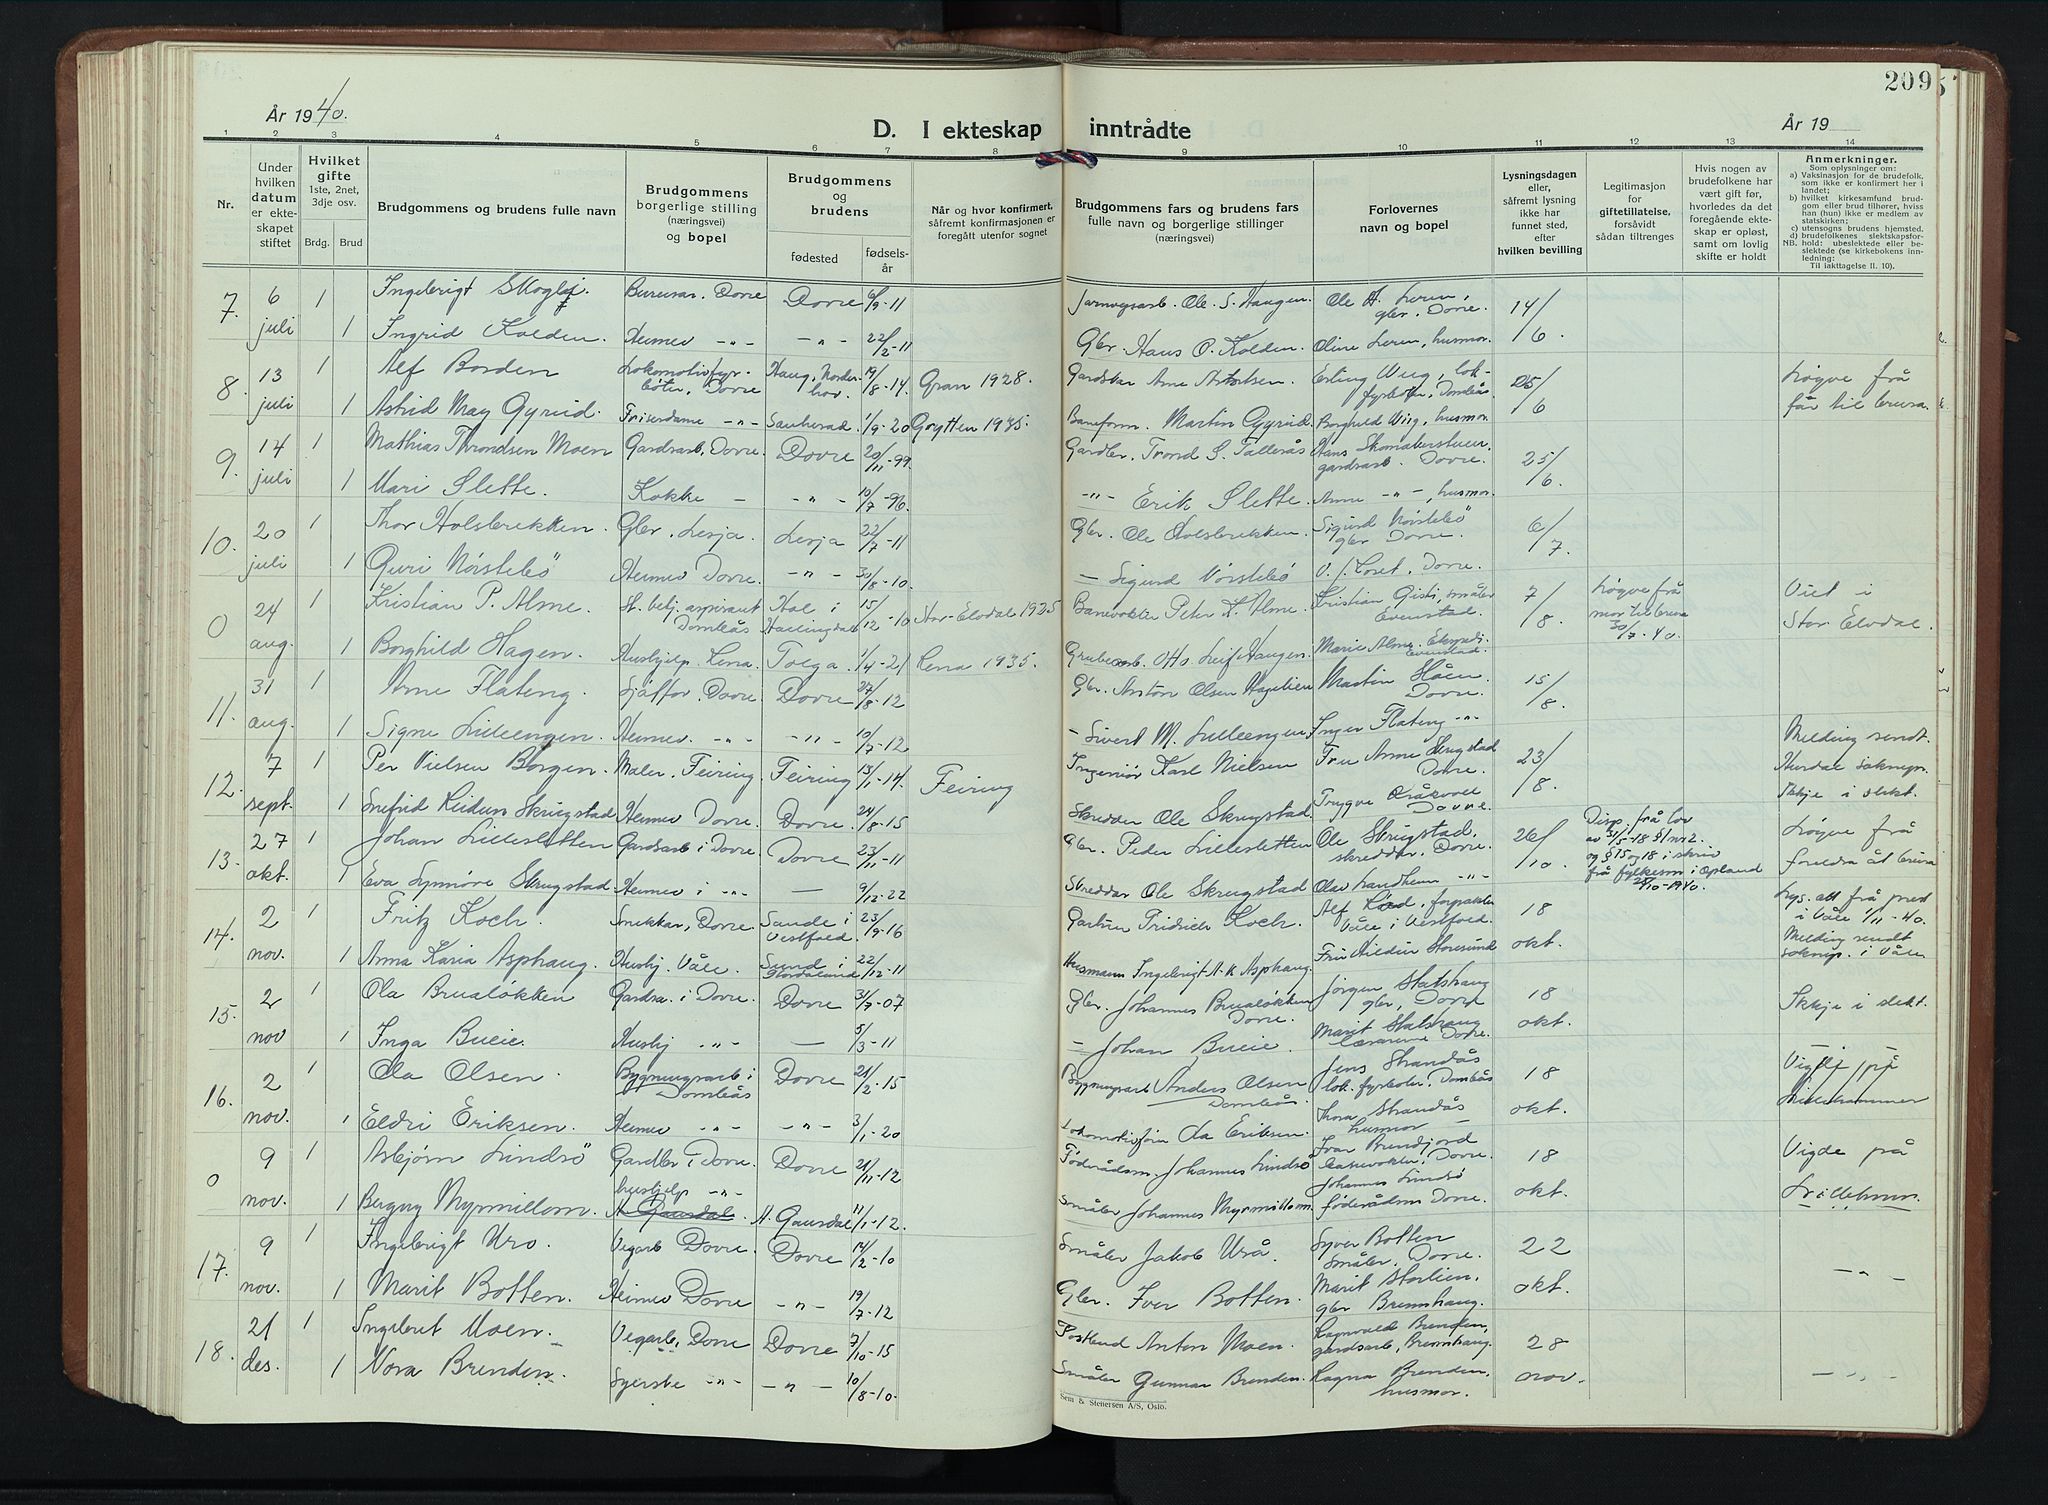 209
År 1940.
D. I ekteskap inntrådte
År 19
1 2 3 4 5 6 7 8 9 10 11 12 13 14
Nr.
Under hvilken datum er ekteskapet stiftet
Hvilket gifte 1ste, 2net, 3dje osv.
Brdg. Brud
Brudgommens og brudens fulle navn
Brudgommens borgerlige stilling (næringsvei) og bopel
Brudgommens og brudens
fødested
fødselsår
Når og hvor konfirmert, såfremt konfirmasjonen er foregått utenfor sognet
Brudgommens fars og brudens fars fulle navn og borgerlige stillinger (næringsvei)
Forlovernes navn og bopel
Lysningsdagen eller, såfremt lysning ikke har funnet sted, efter hvilken bevilling
Legitimasjon for giftetillatelse, forsåvidt sådan tiltrenges
Hvis nogen av brudefolkene har vært gift før, hvorledes da det foregående ekteskap er opløst, samt om lovlig skifte er holdt
Anmerkninger.
Som oplysninger om:
a) Vaksinasjon for de brudefolk, som ikke er konfirmert her i landet;
b) hvilket kirkesamfund brudgom eller brud tilhører, hviss han (hun) ikke er medlem av statskirken;
c) utensogns brudens hjemsted.
d) brudefolkenes slektskapsforhold: ubeslektede eller beslektede (se kirkebokens innledning:
NB.
Til iakttagelse II. 10).
7. 6 juli 1 Ingebrigt Skogli. Bureisar. Dovre Dovre 6/9-11 Jarnvegsarb. Ole S. Haugen. Ole H. Leren, gbr. Dovre. 14/6.
1 Ingrid Kolden. Heimev -"- -"- 22/2-11 Gbr. Hans P. Kolden. Oline Leren, husmor.
8. 13 juli 1 Alf Borden Lokomotivfyrbøter, Dovre Haug, Norderhov. 19/8-14. Gran 1928. Gardskar Arne Erling Wiig, lok-fyrbøter, Dombås. 25/6 Løgve frå far til brura.
1 Astrid May Gyrud. Friserdame -"- Sauherad 1/9-20 Grytten 1935. Baneform. Martin Gyrud. Borghild Wiig, husmor.
9. 14 juli 1 Mathias Throndsen Moen Gardsarb. Dovre. Dovre 20/11-99. Gardbr. Trond S. Tallerås Hans gardsarb. Dovre. 25/6
1 Mari Slette. Kokke - -"- 10/7-96. -"- Erik Slette. Anne -"-, husmor.
10. 20 juli 1 Thor Holsbrekken. Gbr. Lesja. Lesja 22/7-11 Gbr. Ole Holsbrekken. Sigurd Nørstebö gbr Dovre. 6/7.
1 Guri Nörstebö Heimev Dovre. -"- 30/8-10. - Sigurd Nörstebö Dovre.
0 24 aug. 1 Kristian P. Alme. St. betj. aspirant Dombås Hol i Hallingdal 15/12-10 Stor-Elvdal 1925 Banevokter Peter K. Alme. Kristian småbr Evenstad. 7/8. Løgve frå mor til brura 30/7-40. Viet i Stor-Elvdal.
1 Borghild Hagen. Hushjelp. Lena Tolga. 1/4-21 Lena 1935. Grubearb. Otto Leif Haugen. Marie Alme, Evenstad.
11. 31 aug. 1 Arne Flateng. Sjåffør. Dovre. Dovre 27/8-12 Gbr. Anton Olsen Martin Håen Dovre. 15/8.
1 Signe Lilleengen. Heimev. -"- -"- 10/7-12 - Sivert M. Lilleengen Inger Flateng -"-
12. 7 sept. 1 Per Nielsen Borgen. Maler. Feiring. Feiring 13/1-14. Feiring Ingeniør Karl Nielsen Fru Anne Skrugstad Dovre. 23/8. Melding sendt. Hurdal soknepr. Ikkje i slekt.
1 Snefrid Reidun Skrugstad Heimev Dovre. Dovre. 24/8-15 Skredder Ole Skrugstad. Trygve Dovre.
13. 27 okt. 1 Johan Lillesletten Gardsarb i Dovre. Dovre 23/11-11 Gbr. Peder Lillesletten Ole Skrugstad. skredder, Dovre. 26/10. Disp. frå lov av 31/5-18 §1 nr 2. og §15 og 18 i skriv frå fylkesm i Opland 28/10-1940. Løgve frå foreldra åt brura
1 Eva Synnöve Skrugstad Heimev i -"- - 9/12-22 Skreddar Ole Skrugstad Olav Landheim -"-
14. 2 nov. 1 Fritz Koch. Snikkar, Dovre. Sande i Vestfold. 23/9-16 Gartner Fridrich Koch. Alf forpakter Våle i Vestfold. 18 okt. Lys. att frå prest i Våle 1/11-40. Melding sendt soknep. i Våle
1 Anna Karia Asphaug. Hushj. Våle. Sund i 22/12-11 Husmann Ingebrigt A.K Asphaug.
15. 2 nov 1 Ola Brualökken Gardsa. i Dovre. Dovre 31/7-07 Gbr. Johannes Brualökken Dovre. Jörgen Stalshaug gbr, Dovre 18 okt. Ikkje i slekt.
1 Inga Bueie. Hushj -"- - 5/3-11 - Johan Bueie. Marit Stalshaug Dovre.
16. 2 nov. 1 Ola Olsen. Bygningsarb i Dombås Dovre 21/2-15 Bygningsarb Anders Olsen Dombås. Jens Strandås lok. fyrbøter, Dombås 18 okt. på Lillehammer
1 Eldri Eriksen. Heimev -"- -"- 3/1-20 Lokomotivför. Ola Eriksen. Thora Strandås husmor -
0 9 nov. 1 Asbjörn Lindsö Gardbr i Dovre. Dovre 21/11-12 Föderådsm. Johannes Lindsö Ivar Brendjord Dovre. 18 okt. Vigde på Lillehmr.
1 Bergny Myrmillom. hushjelp -"- A Gausdal. A. Gausdal 11/1-12. Småbr Johannes Myrmillom. Johannes Lindsö föderådsm Dovre.
17. 9 nov. 1 Ingebrigt Uro. Vegarb Dovre. Dovre 14/2-10 Småbr Jakob Urå. Syver Botten Småbr. Dovre. 22 okt. -"-
1 Marit Botten. Heimev Dovre -"- 19/7-12 Gbr. Iver Botten. Marit Storlien, gbr Brennhaug.
18. 21 des. 1 Ingebret Moen. Vegarb. Dovre Dovre 7/10-15 Postbud Anton Moen. Ragnvald Brenden, gardsarb, Brennhaug. 28 nov. -"-
1 Nora Brenden. Syerske -"- -"- 10/8-10. Småbr Gunnar Brenden. Ragna Brenden, husmor.
Sem & Stenersen A/S, Oslo.